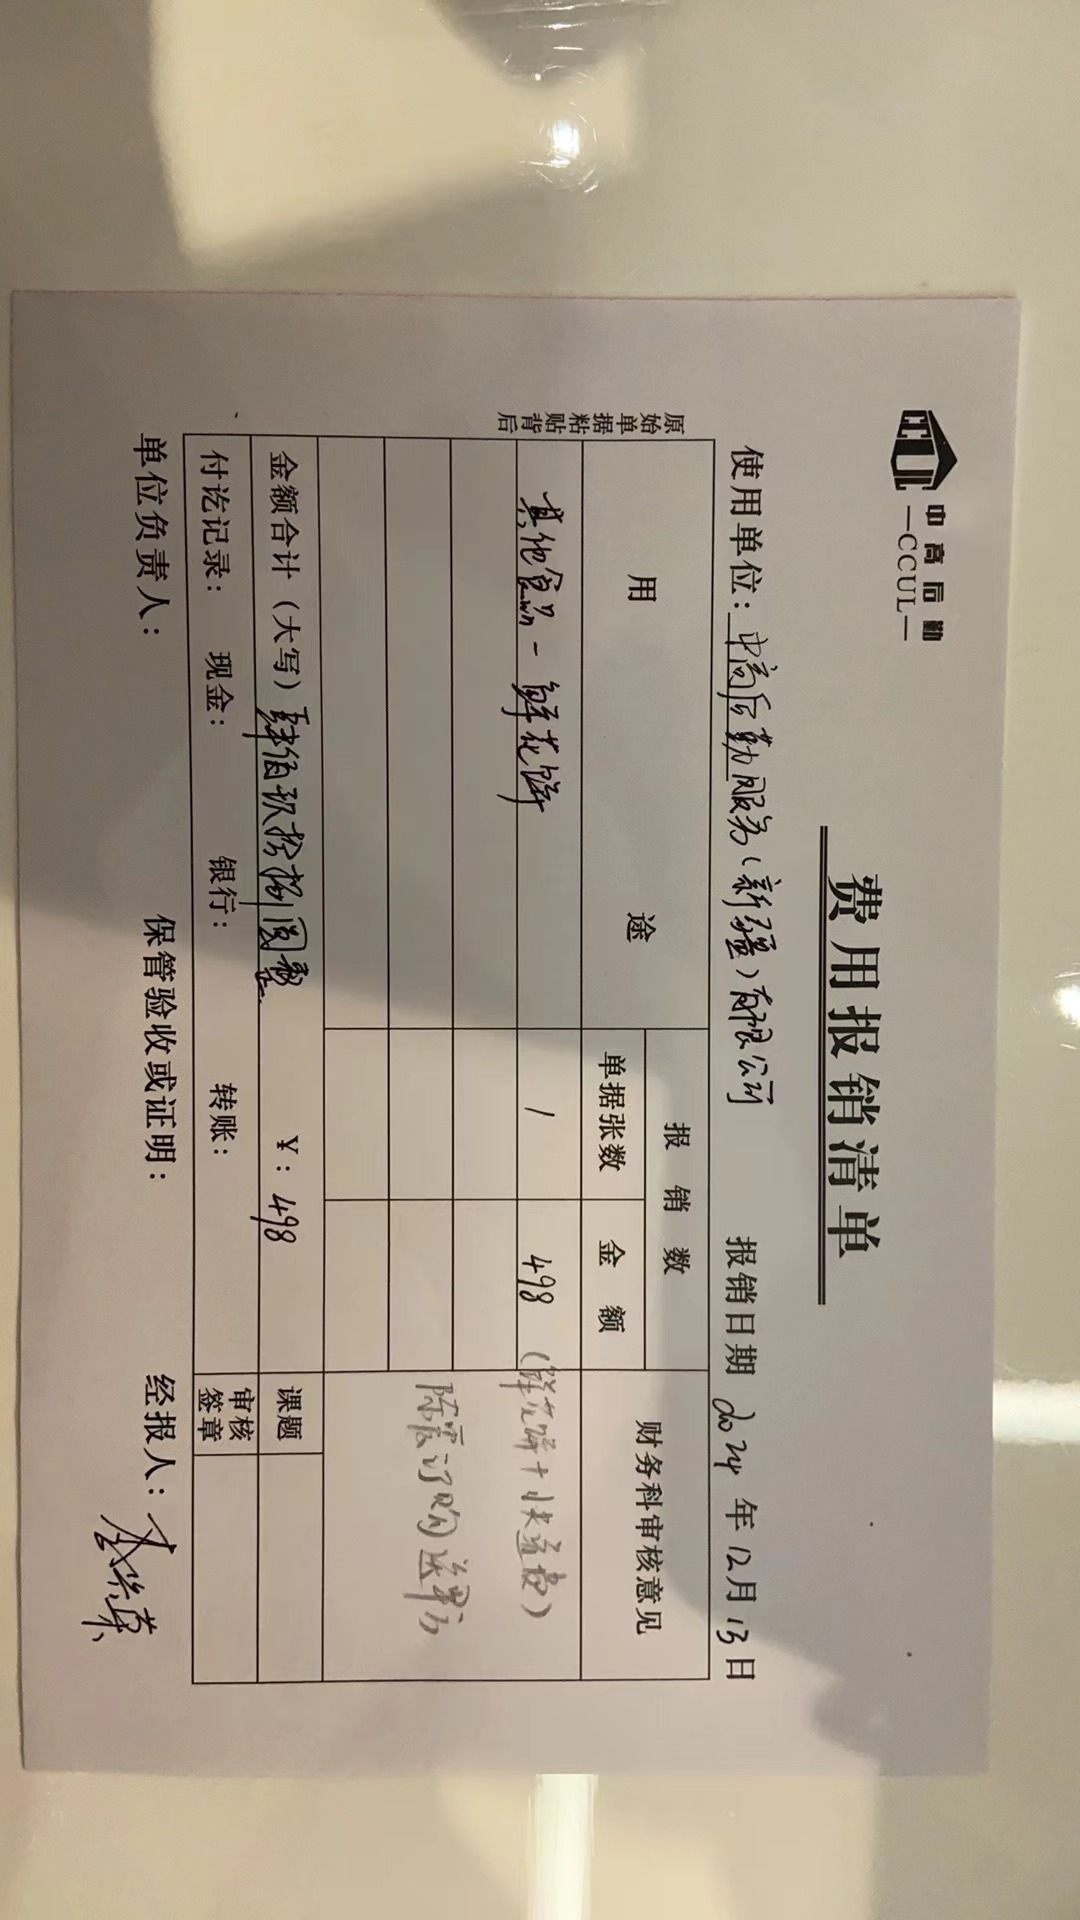 中高后勤
—CCUL—
费用报销清单
使用单位：中高后勤服务（新疆）有限公司 报销日期 2024 年 12 月 13 日
原始单据粘贴背后
用 途 报 销 数 财务科审核意见
单据张数 金 额
其他食品－鲜花饼 1 498 （鲜花饼＋快递费）
订购送
金额合计（大写）肆佰玖拾捌圆整 ¥：498 课题
付讫记录： 现金： 银行： 转账： 审核签章
单位负责人： 保管验收或证明： 经报人：